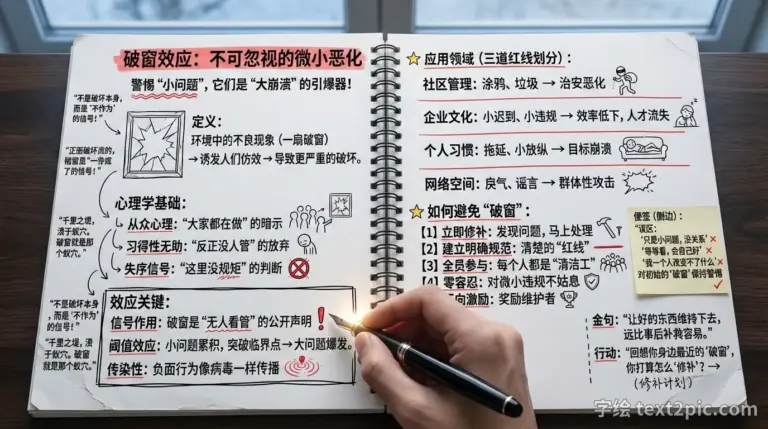 破窗效应：不可忽视的微小恶化
警惕“小问题”，它们是“大崩溃”的引爆器！
“不是破坏本身，
而是‘不作为’
的信号！”
定义：
环境中的不良现象（一扇破窗）
→诱发人们仿效→导致更严重的破坏。
“千里之堤，
溃于蚁穴。
破窗就是那
个蚁穴。”
心理学基础：
从众心理：“大家都在做”的暗示
习得性无助：“反正没人管”的放弃
失序信号：“这里没规矩”的判断
“不是破坏本身
，而是‘不作
为’的信号！”
“千里之堤，溃
于蚁穴。破窗
就是那个蚁穴。”
效应关键：
信号作用：破窗是“无人看管”的公开声明
阈值效应：小问题累积，突破临界点→大问题爆发。
传染性：负面行为像病毒一样传播
应用领域（三道红线划分）：
社区管理：涂鸦、垃圾→治安恶化
企业文化：小迟到、小违规→效率低下，人才流失
个人习惯：拖延、小放纵→目标崩溃
网络空间：戾气、谣言→群体性攻击
如何避免“破窗”：
【1】立即修补：发现问题，马上处理
【2】建立明确规范：清楚的“红线”
【3】全员参与：每个人都是“清洁工”
【4】零容忍：对微小违规不姑息
向激励：奖励维护者
便签（侧边）：
“误区：
‘只是小问题，没关系’
‘等等看，会自己好’
‘我一个人改变不了什么’
对初始的‘破窗’保持警惕
金句：“让好的东西维持下去，
远比事后补救容易。”
行动：“回想你身边最近的‘破窗’，
你打算怎么‘修补’？→
（修补计划）
字绘·text2pic.com